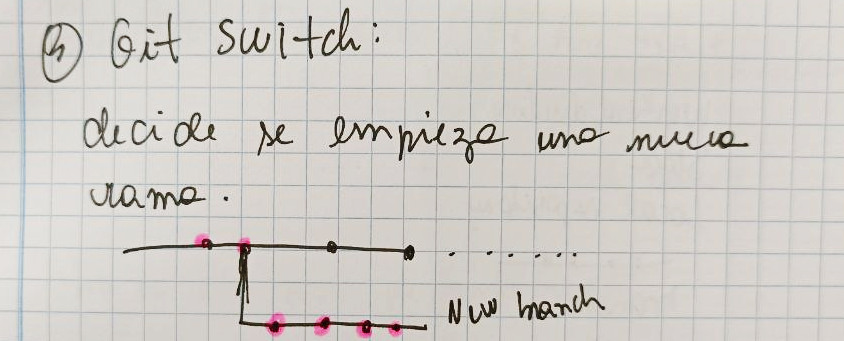 3) Git switch:
decide se empieza una nueva
rama.
. . . . . . .
New branch